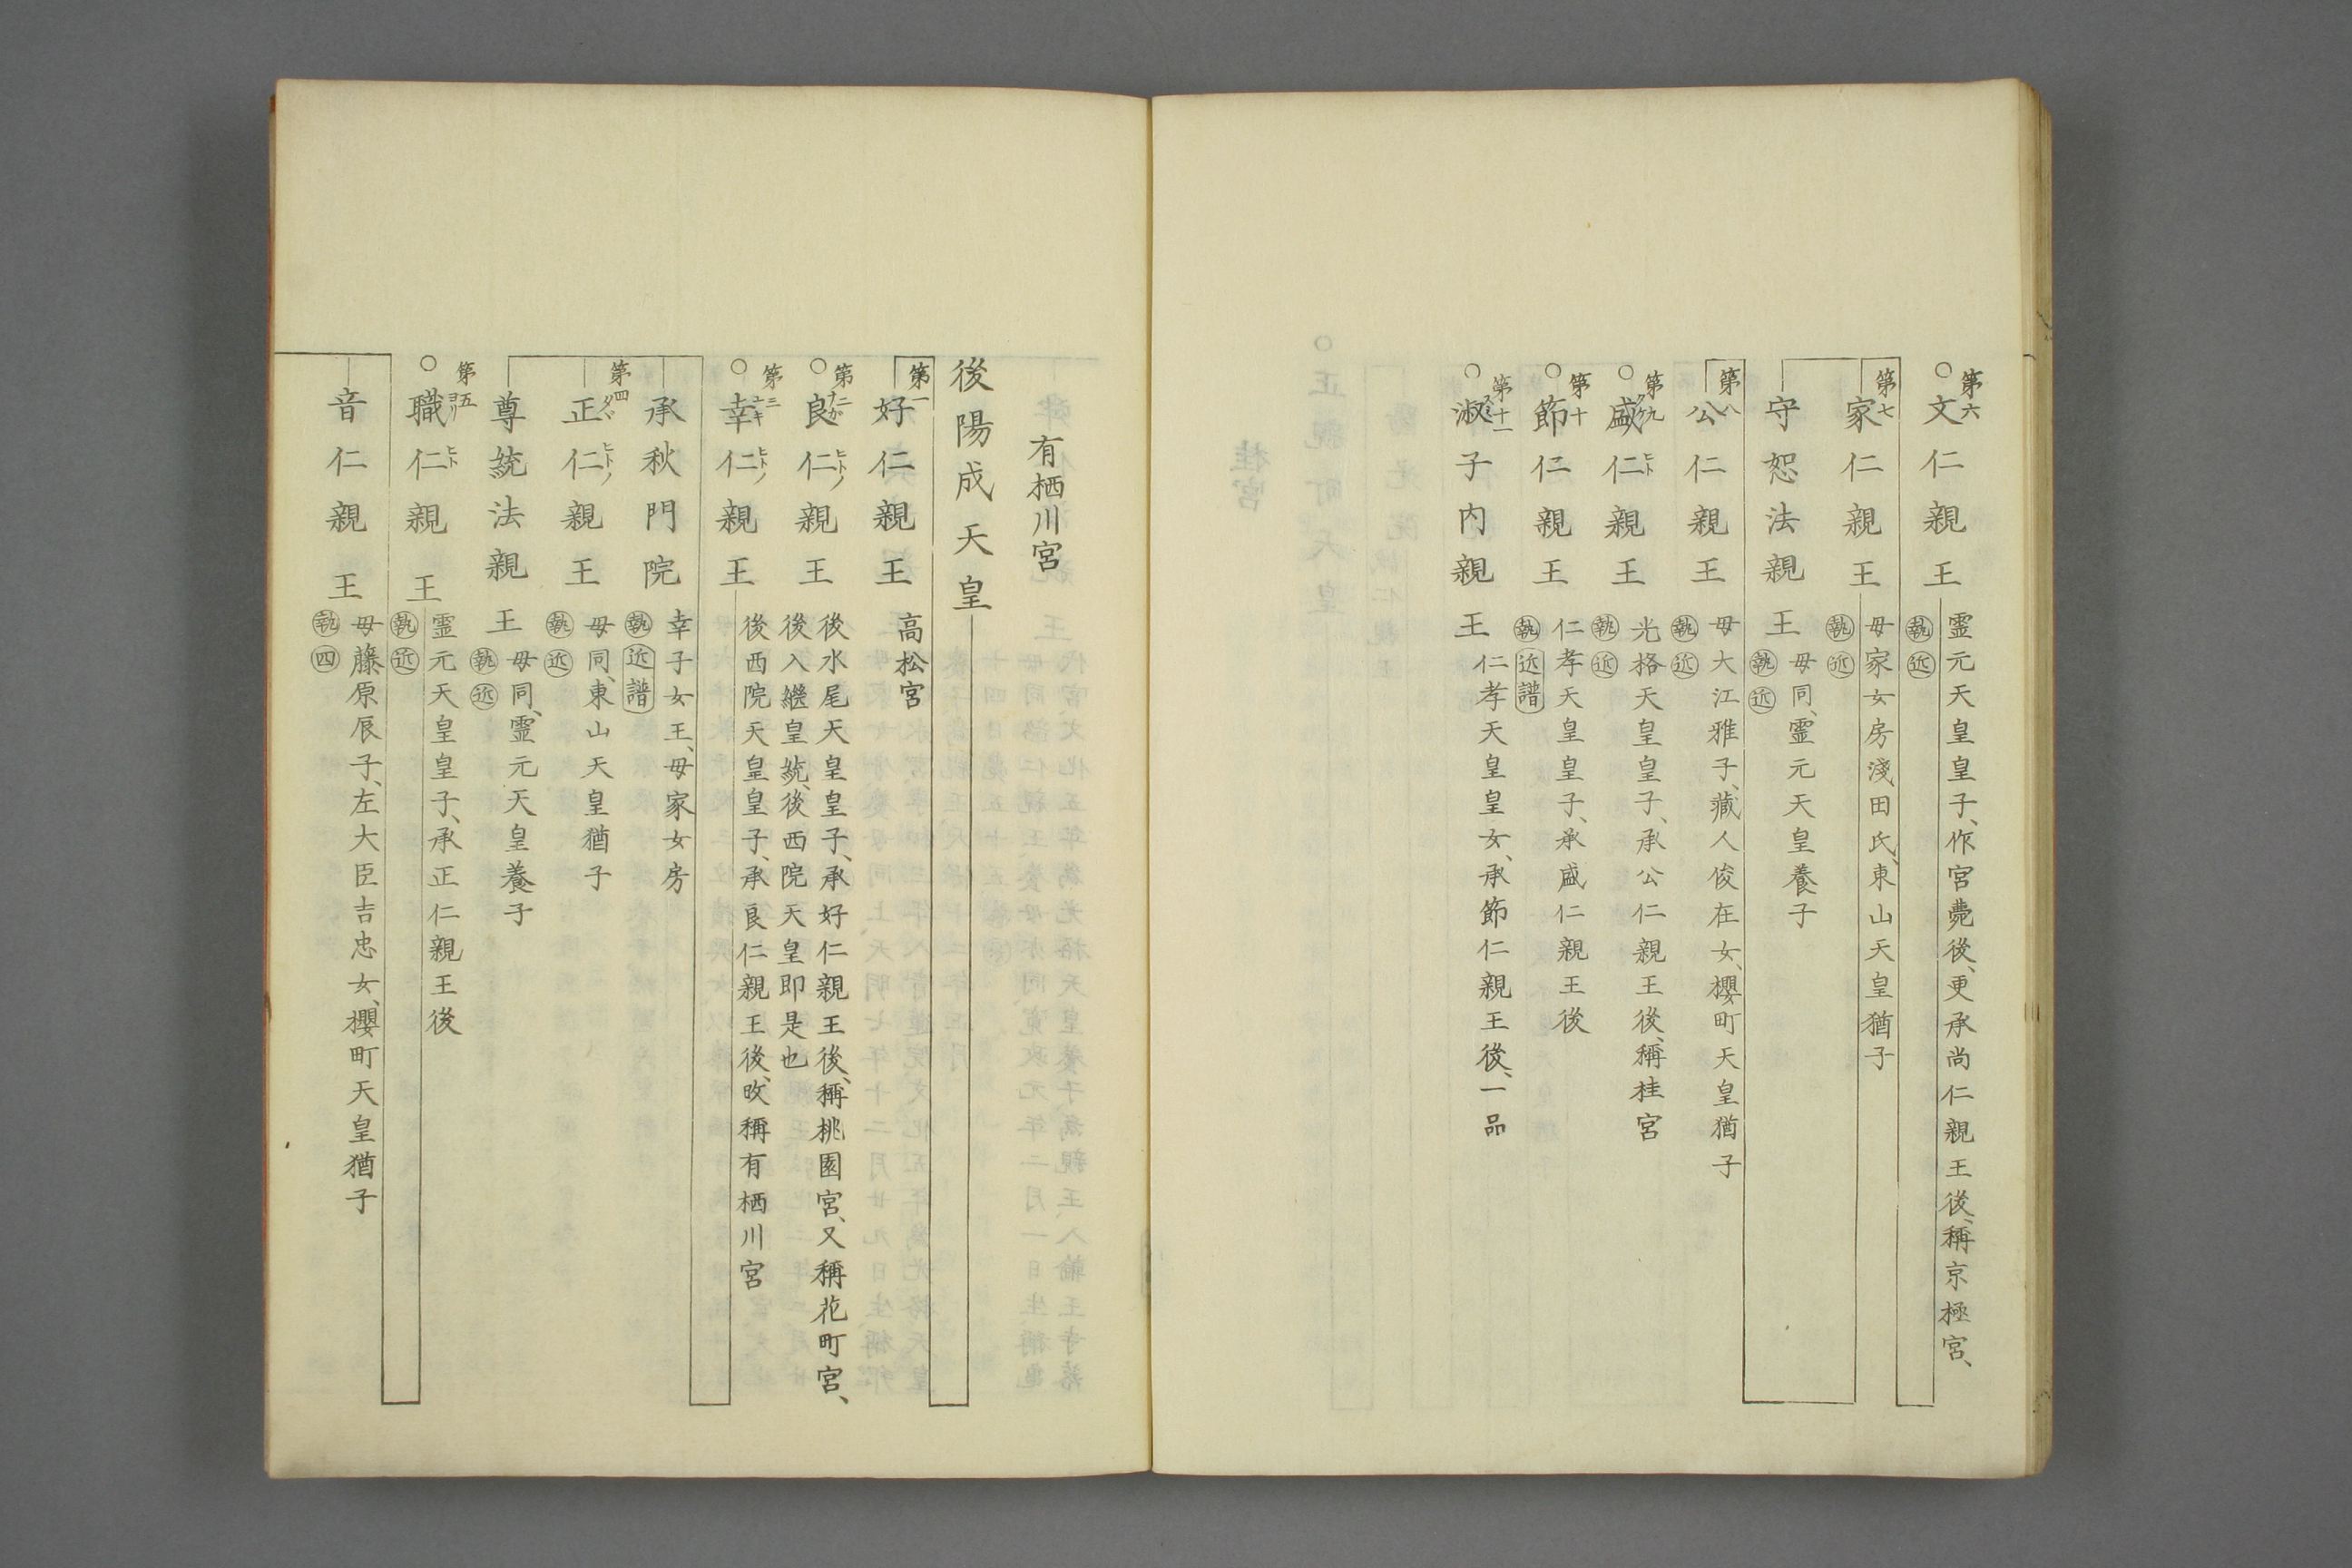 第六
文仁親王
霊元天皇皇子、作宮薨後、更承尚仁親王後、稱京極宮、
執 近
第七
家仁親王
母家女房淺田氏、東山天皇猶子
執 近
守恕法親王
母同、霊元天皇養子
執 近
第八
公仁親王
母大江雅子、藏人俊在女、櫻町天皇猶子
執 近
第九
盛仁親王
ヒト
光格天皇皇子、承公仁親王後、稱桂宮
執 近
第十
節仁親王
仁孝天皇皇子、承盛仁親王後
執 近譜
第十一
淑子内親王
仁孝天皇皇女、承節仁親王後、一品
有栖川宮
後陽成天皇
第一
好仁親王
高松宮
第二
良仁親王
ナガ ヒト
後水尾天皇皇子、承好仁親王後、稱桃園宮、又稱花町宮、
後入繼皇統、後西院天皇即是也
第三
幸仁親王
ユキ ヒト
後西院天皇皇子、承良仁親王後、改稱有栖川宮
承秋門院
幸子女王、母家女房
執 近譜
第四
正仁親王
タヾ ヒト
母同、東山天皇猶子
執 近
尊統法親王
母同、霊元天皇養子
執 近
第五
職仁親王
ヨリ ヒト
霊元天皇皇子、承正仁親王後
執 近
音仁親王
母藤原辰子、左大臣吉忠女、櫻町天皇猶子
執 四